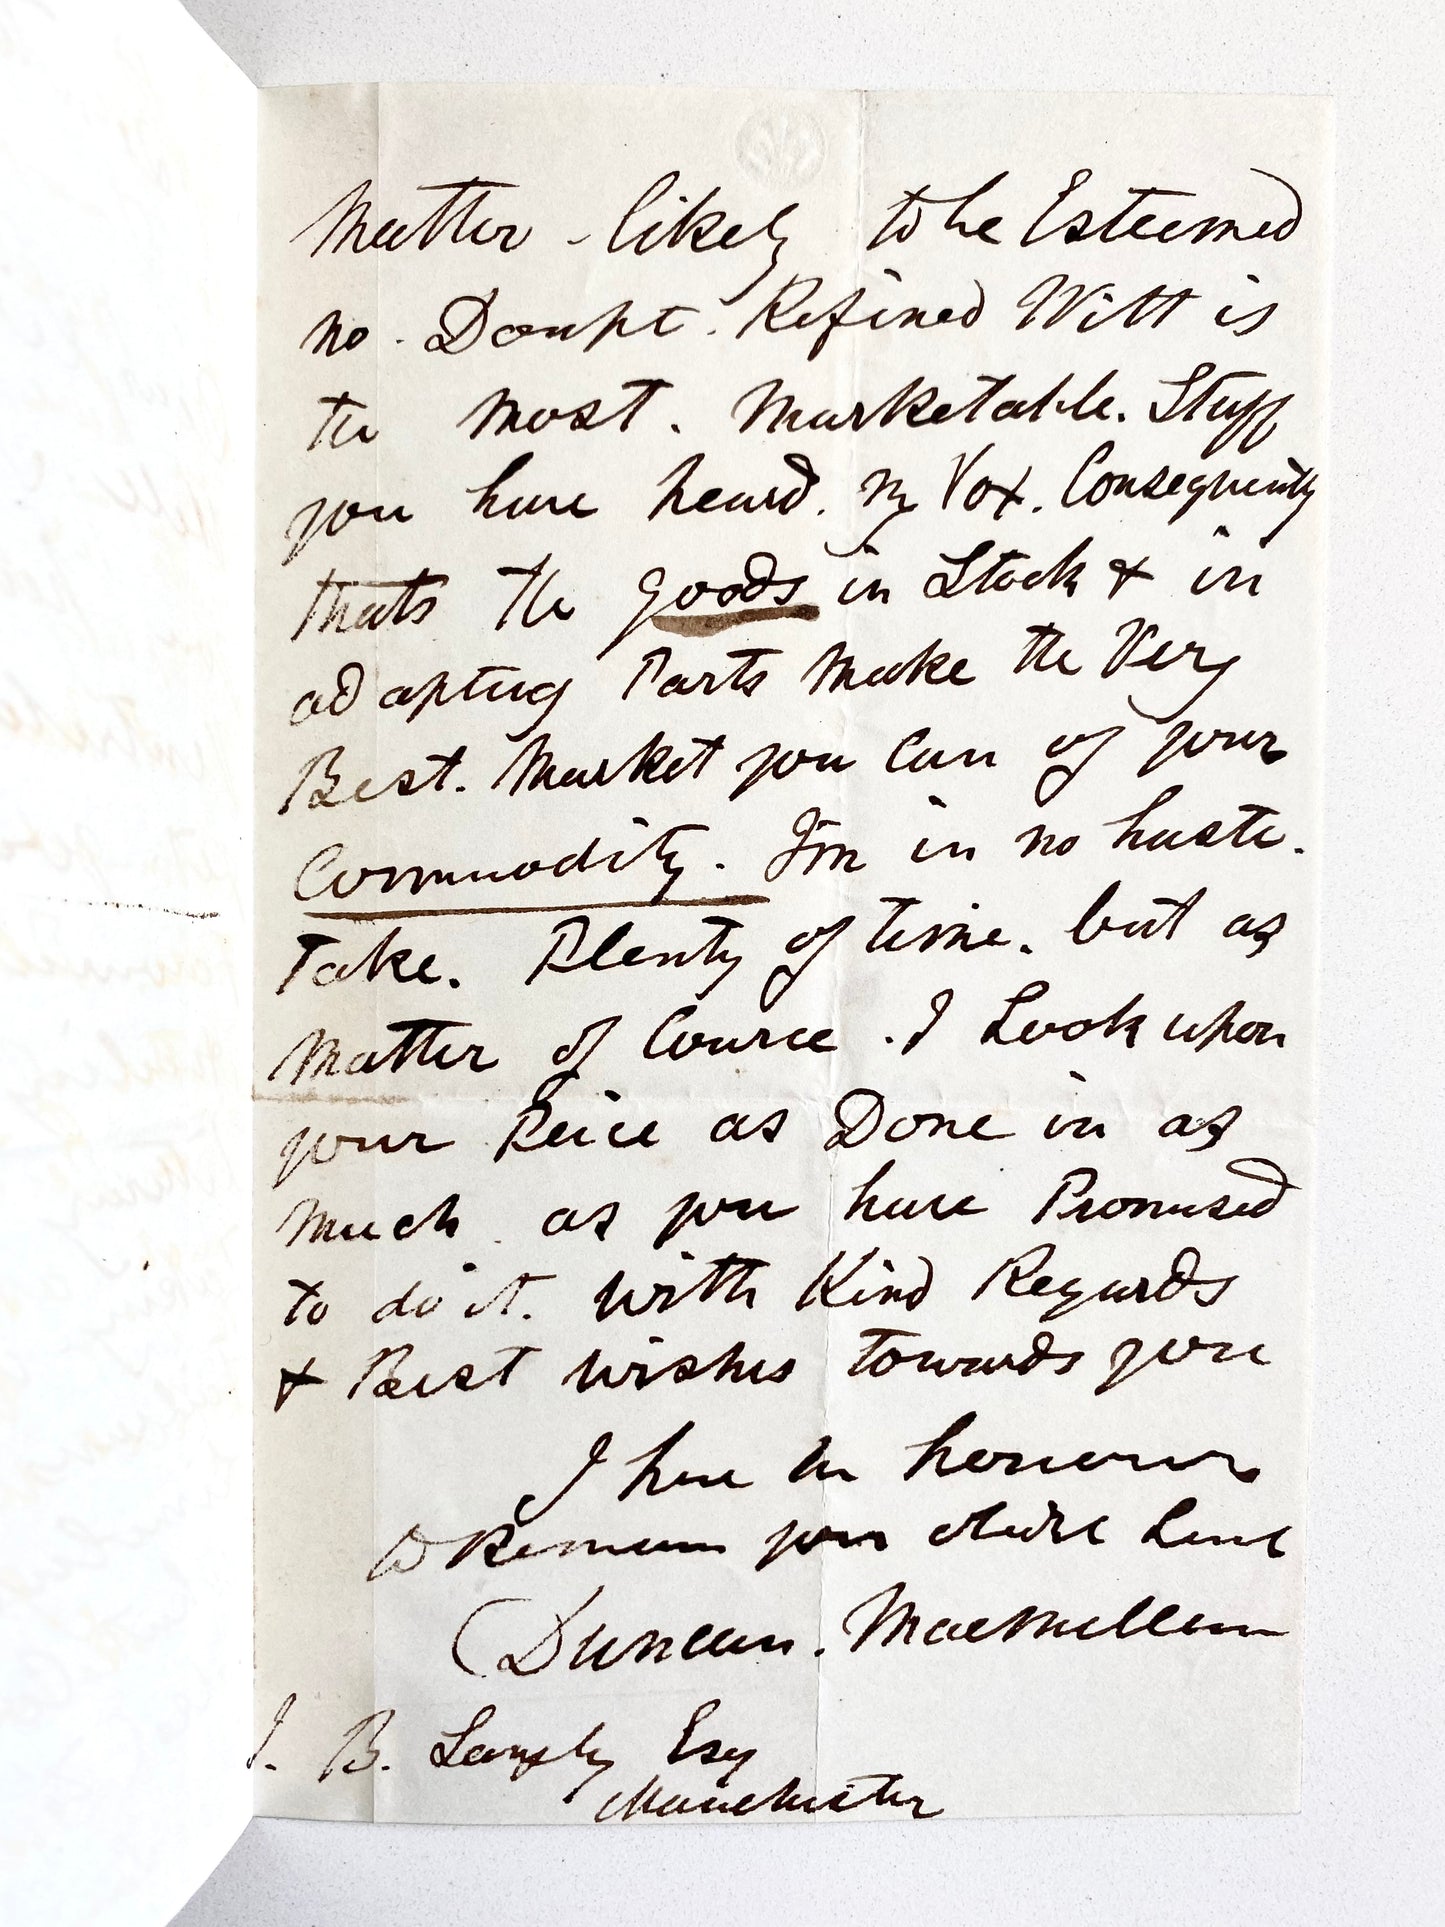 Matter - likely to be Esteemed
no. Doupt. Refined Witt is
the most. Marketable. Stuff
you have heard. my Vox. Consequently
thats the goods in Stock & in
adapting Parts make the Very
Best. Market you Can of your
Commodity. I'm in no haste.
Take. Plenty of time. but as
Matter of Cource. I Look upon
your Peice as Done in as
much as you have Promised
to do it. with Kind Regards
& Best wishes towards you
I have the honour
to Remain your
Duncan. Macmillan
J. B. Esq
Manchester